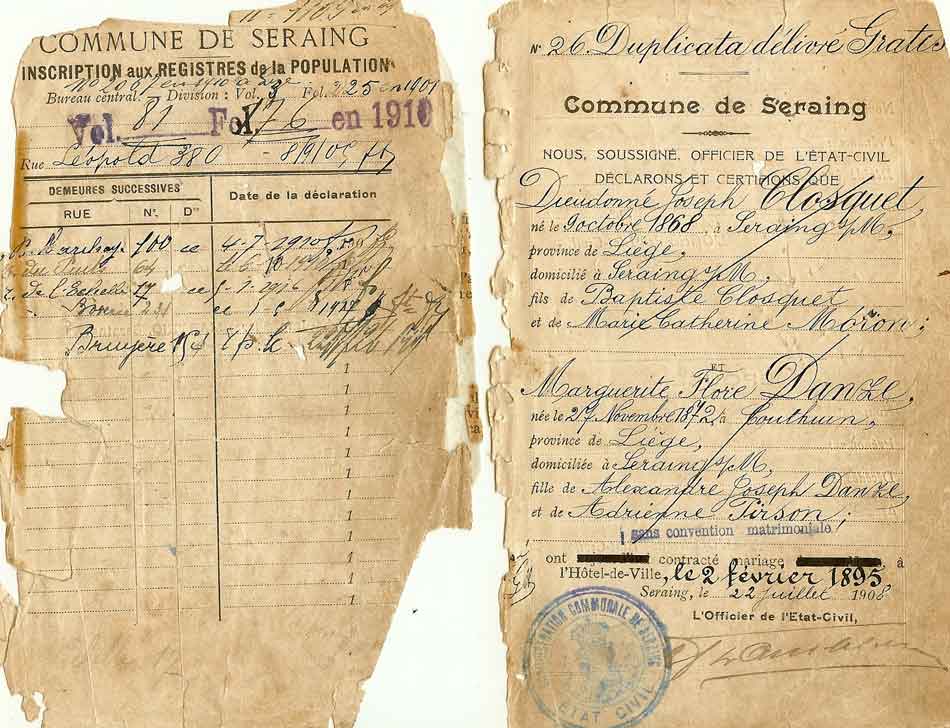 COMMUNE DE SERAING
INSCRIPTION aux REGISTRES de la POPULATION
Bureau central. Division : Vol. 3 Fol. 225 en 1901
Vol. 81 Fol. 176 en 1910
Rue Léopold 380
DEMEURES SUCCESSIVES
Date de la déclaration
RUE N°. D"
100 ce 4-7-1910
64
r. de l'Echelle 17
Boverie 231
Bruyère
1
1
1
1
1
1
1
1
1
N° 26. Duplicata délivré Gratis
Commune de Seraing
NOUS, SOUSSIGNÉ, OFFICIER DE L'ÉTAT-CIVIL
DÉCLARONS ET CERTIFIONS QUE
Dieudonné Joseph Closquet
né le 9 octobre 1868, à Seraing s/M,
province de Liége,
domicilié à Seraing s/M,
fils de Baptiste Closquet
et de Marie Catherine Moron ;
ET
Marguerite Flore Danze,
née le 27 Novembre 1872, à Couthuin,
province de Liége,
domiciliée à Seraing s/M,
fille de Alexandre Joseph Danze,
et de Adrienne Pirson ;
sans convention matrimoniale
ont contracté mariage à
l'Hôtel-de-Ville, le 2 février 1895
Seraing, le 22 juillet 1908
L'Officier de l'Etat-Civil,
ADMINISTRATION COMMUNALE DE SERAING
ETAT CIVIL